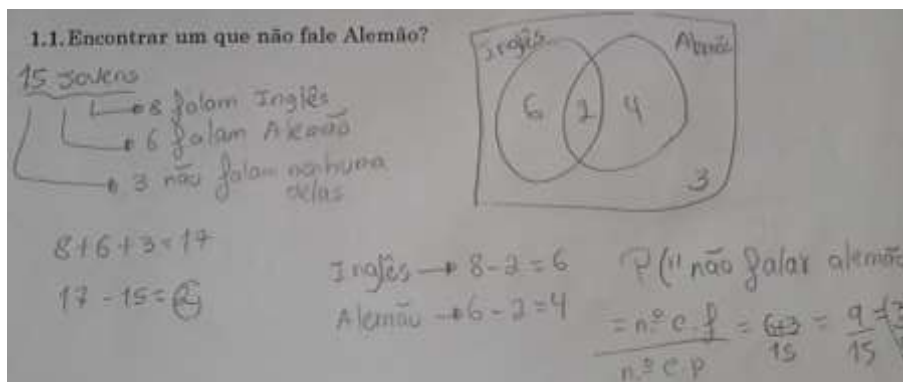 1.1. Encontrar um que não fale Alemão?
15 Jovens
8 falam Inglês
6 falam Alemão
3 não falam nenhuma
delas
8+6+3=17
17-15=2
Inglês
Alemão
6
2
4
3
Inglês → 8-2=6
Alemão → 6-2=4
P("não falar alemão
= nº c.f / n.º c.p = 6+3 / 15 = 9 / 15 =